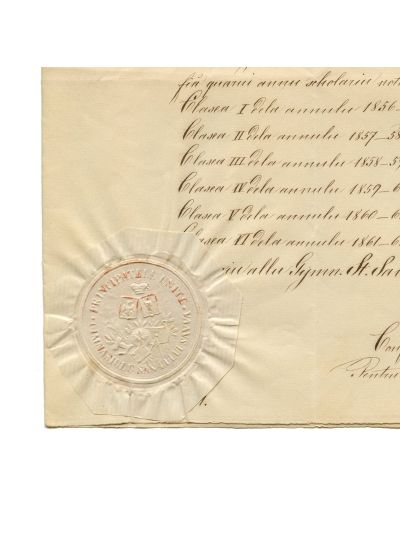 annui scholariu
Clasea I dela annulu 1856-
Clasea II dela annulu 1857-58
Clasea III dela annulu 1858-59
Clasea IV dela annulu 1859-6
Clasea V dela annulu 1860-6
Clasea VI dela annulu 1861-6
allu Gymn. St. Sa
PRINCIPATELE UNITE
1.